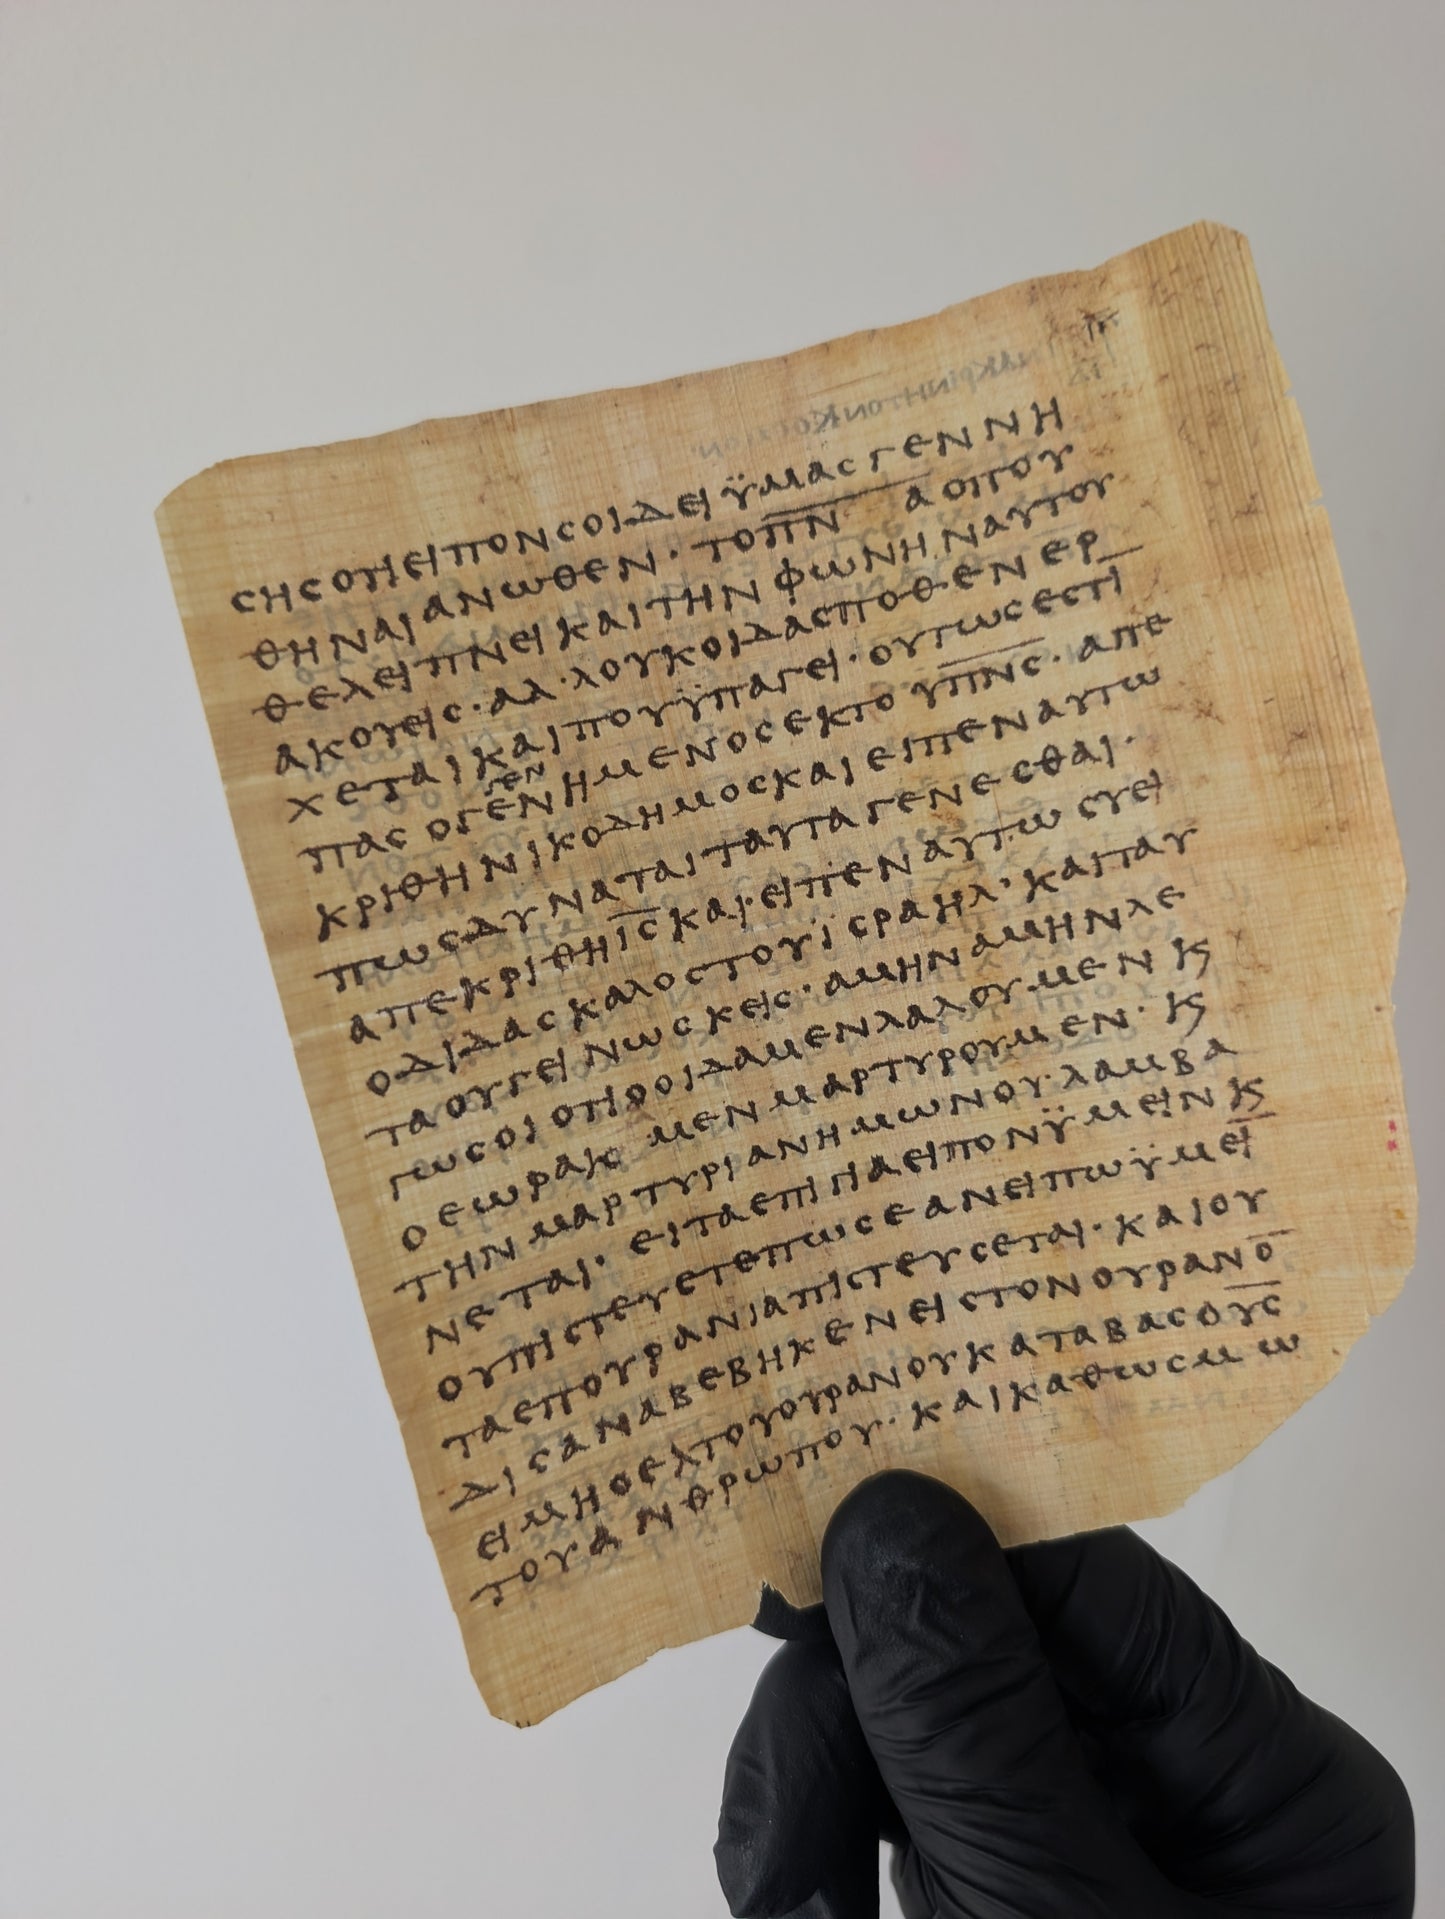 ϲηϲοτιειπονϲοιδειϋμαϲγεννη
θηναιανωθεν· τοπ̅ν̅ αοπου
θελειπνεικαιτηνφωνηναυτου
ακουειϲ·αλ·λουκοιδαϲποθενερ
χεταικαιπουϋπαγει·ουτωϲεϲτι̅
γεν
παϲογενημενοϲεκτο υπ̅ν̅ϲ̅·απε
κριθηνικοδημοϲκαιειπεναυτω
πωϲδυναταιταυταγενεϲθαι·
απεκριθηι̅ϲ̅και·ειπεναυτωϲυει
οδιδαϲκαλοϲτουϊϲραηλ·καιταυ
ταουγεινωϲκειϲ·αμηναμηνλε
γωϲοιοτιοοιδαμενλαλουμενκϛ
οεωρακ μενμαρτυρουμεν·κϛ
τηνμαρτυριανημωνουλαμβα
νεται· ειταεπιγιαειπονϋμεινκϛ
ουπιϲτευετεπωϲεανειπωϋμει̅
ταεπουρανιαπιϲτευϲεται·καιου
διϲαναβεβηκενειϲτονουρανο̅
ειμηοεκτουουρανουκαταβαϲου̅ϲ̅
τουανθρωπου·καικαθωϲμω